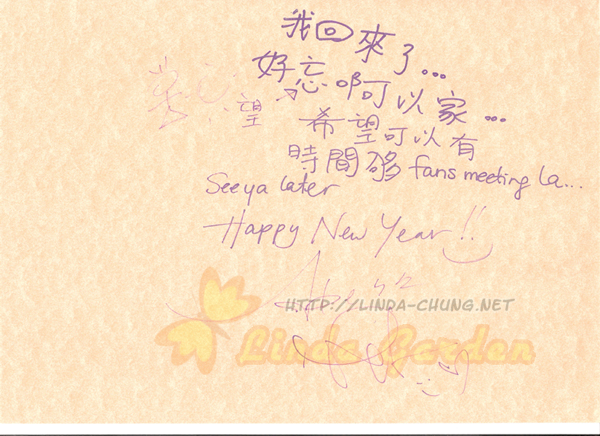 我回來了...
好忘啊可以家...
望 希望可以有
時間够 fans meeting la...
See ya later
Happy New Year!!
HTTP://LINDA-CHUNG.NET
Linda Garden